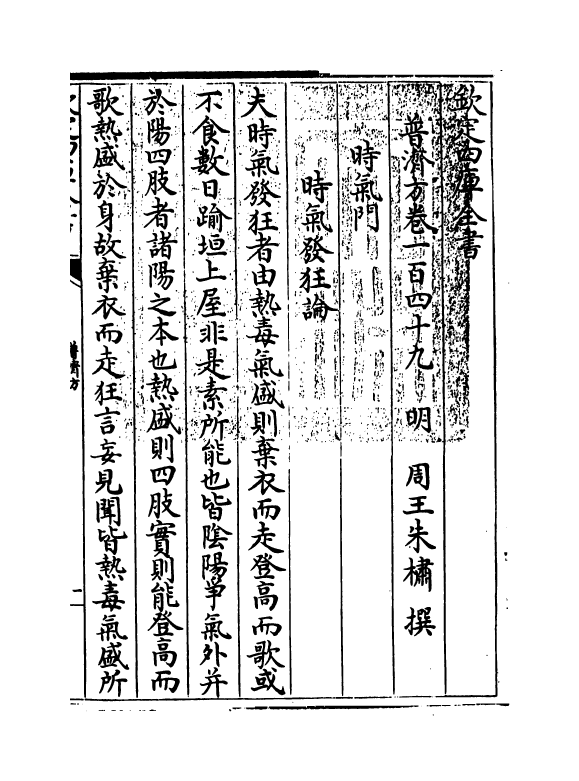 欽定四庫全書
普濟方卷一百四十九　明　周王朱橚　撰
時氣門
時氣發狂論
夫時氣發狂者由熱毒氣盛則棄衣而走登高而歌或
不食數日踰垣上屋非是素所能也皆陰陽爭氣外并
於陽四肢者諸陽之本也熱盛則四肢實實則能登高而
歌熱盛於身故棄衣而走狂言妄見聞皆熱毒氣盛所
普濟方